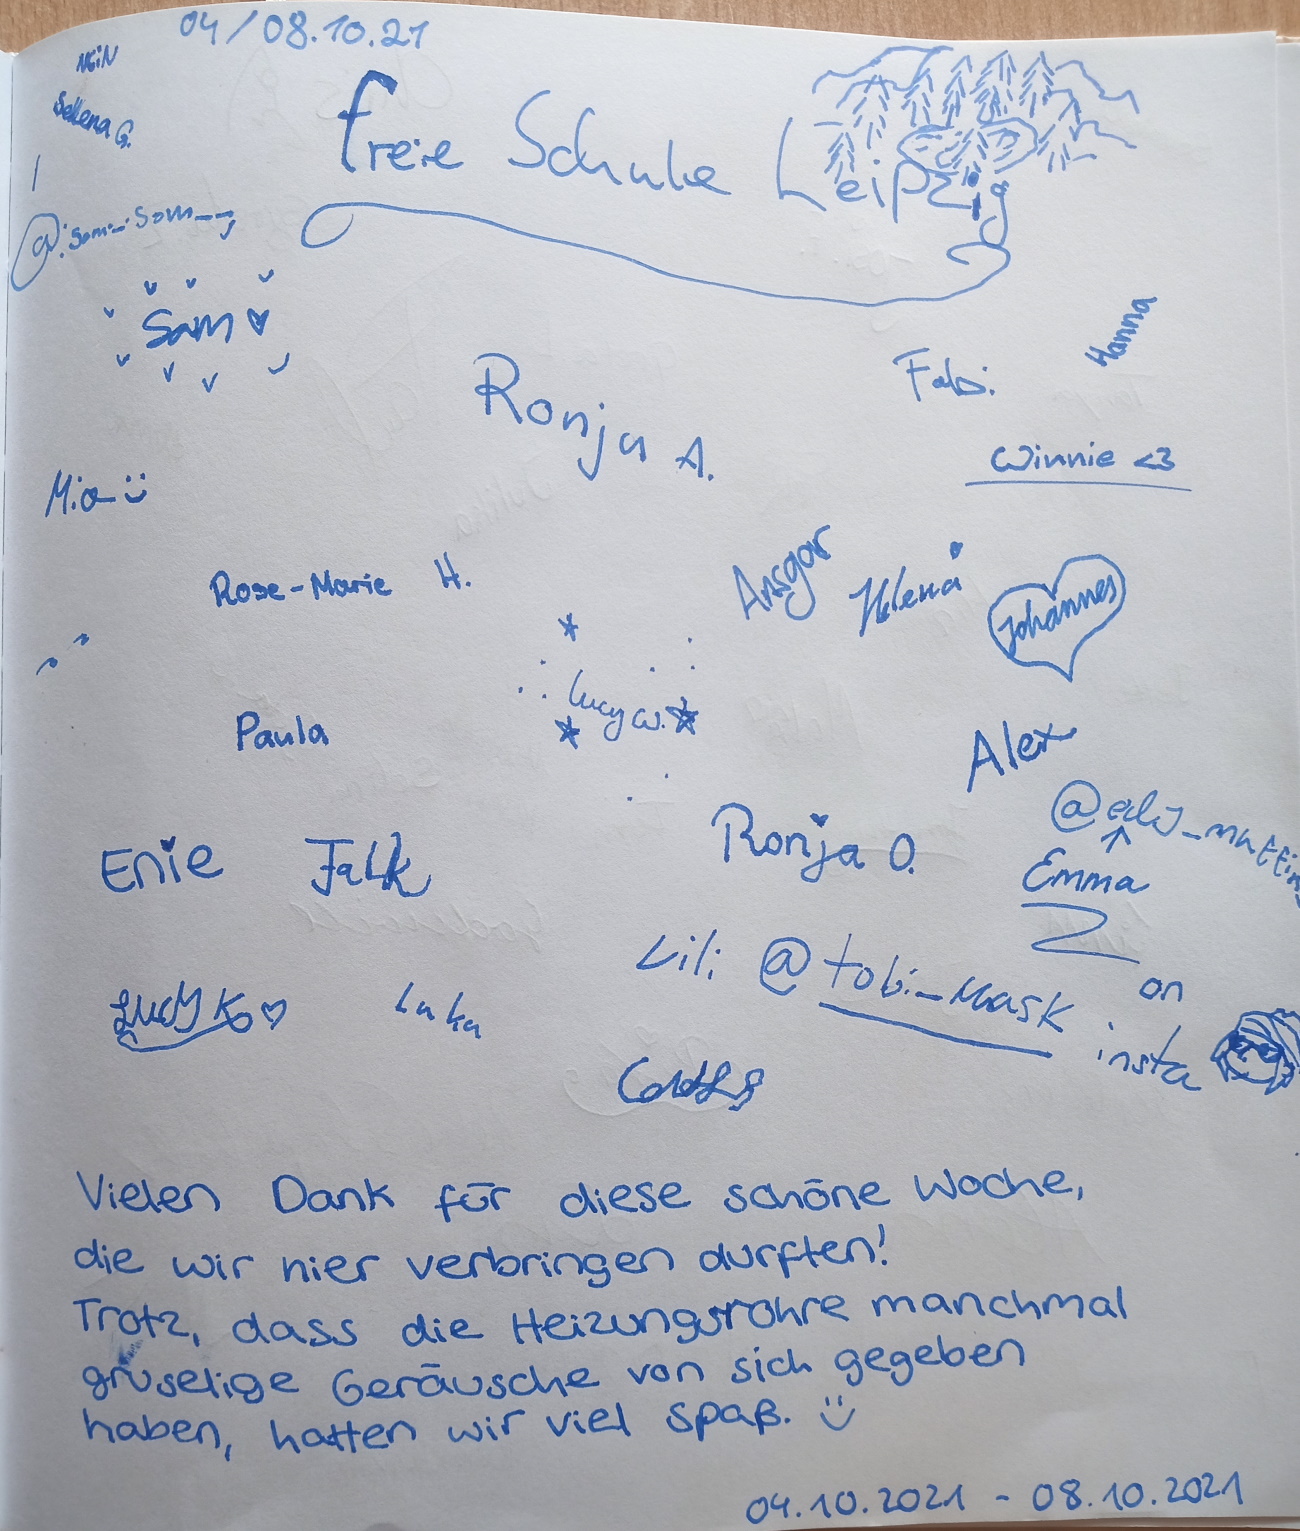 04/08.10.21
NEIN
Sellena G.
freie Schule Leipzig
Sam
Hanna
Fabi
Ronja A.
Winnie <3
Mia
Rose-Marie H.
Ansgar Helena Johannes
Lucy W.
Paula
Alex
Ronja O.
Enie Falk
Emma
Lili @tobi_mask
on
insta
Lucy K
Luka
Vielen Dank für diese schöne Woche,
die wir hier verbringen durften!
Trotz, dass die Heizungsrohre manchmal
gruselige Geräusche von sich gegeben
haben, hatten wir viel spaß.
04.10.2021 - 08.10.2021